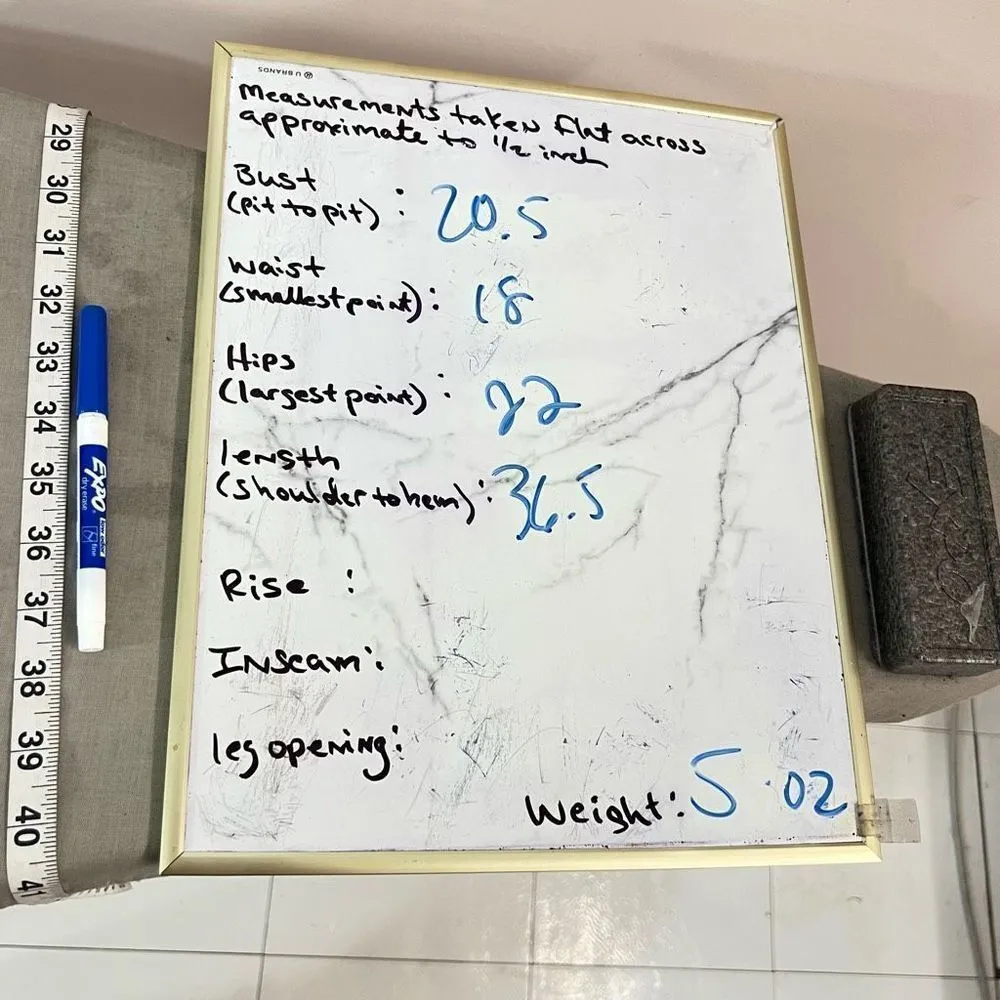 U BRANDS
Measurements taken flat across
approximate to 1/2 inch
Bust
(pit to pit) : 20.5
waist
(smallest point) : 18
Hips
(largest point) : 22
length
(shoulder to hem) : 36.5
Rise :
Inseam :
leg opening :
Weight : 5 02
29
30
31
32
33
34
35
36
37
38
39
40
41
EXPO
dry erase
low odor
fine